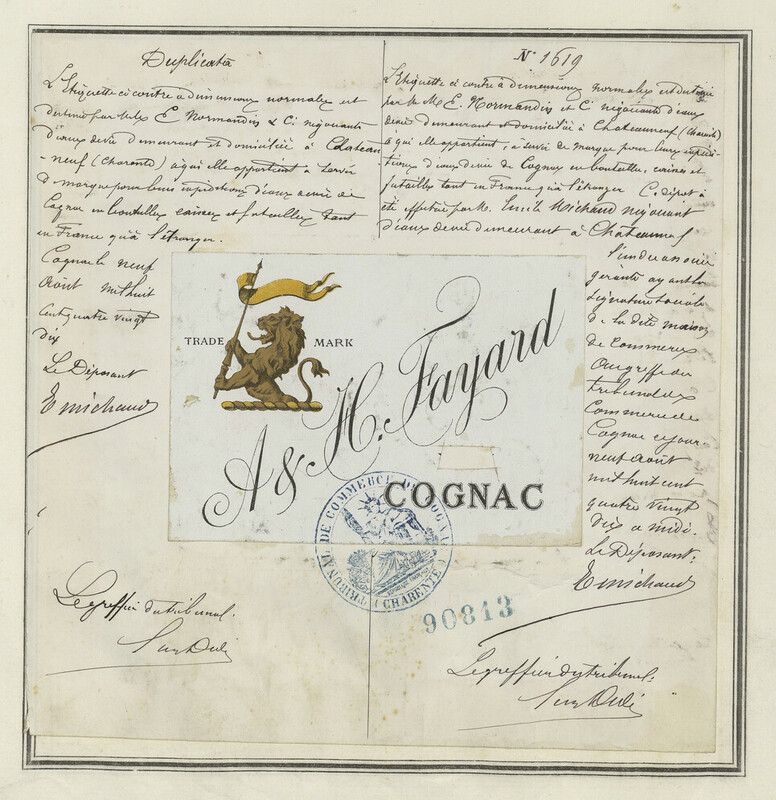 Duplicata
L'Etiquette ci contre à dimensions normales est
destiné par M. M. E. Normandin & Cie négociants
d'eaux de vie demeurant et domiciliés à Château
-neuf (Charente) à qui elle appartient à servir
de marque pour leurs expéditions d'eaux de vie de
Cognac en bouteilles caisses et futailles tant
en France qu'à l'étranger.
Cognac le neuf
Août mil huit
cent quatre vingt
dix
Le Déposant
E michaud
Le greffier du tribunal.
N° 1619
L'Etiquette ci contre à dimensions normales est destiné
par M. M. E. Normandin et Cie négociants d'eaux
de vie demeurant et domiciliés à Chateauneuf (Charente)
à qui elle appartient, à servir de marque pour leurs expédi-
tions d'eaux de vie de Cognac en bouteilles, caisses et
futailles tant en France qu'à l'étranger Ce dépôt a
été effectué par M. Emile Michaud négociant
d'eaux de vie demeurant à Châteauneuf
l'un des associés
gérants ayant la
signature sociale
de la dite maison
de Commerce
Au greffe du
tribunal de
Commerce de
Cognac ce jour.
neuf Août
mil huit cent
quatre vingt
dix à midi.
Le Déposant:
E michaud
Le greffier du tribunal.
TRADE MARK
A & H. Fayard
COGNAC
TRIBUNAL DE COMMERCE DE COGNAC
(CHARENTE)
90813